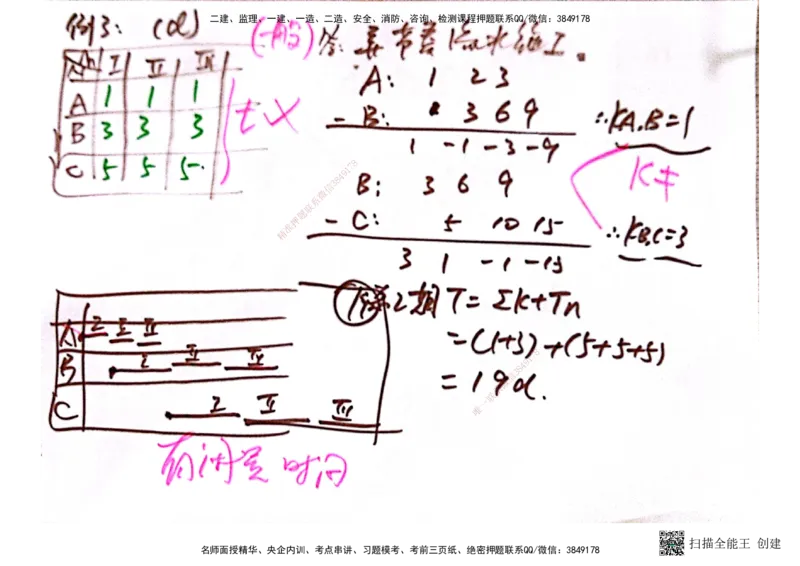 二建、监理、一建、一造、二造、安全、消防、咨询、检测课程押题联系QQ/微信：3849178
例3：（d）
（一般）答：异节奏流水施工。
I II III
A 1 1 1
B 3 3 3
C 5 5 5
t×
A: 1 2 3
- B: 3 6 9
1 -1 -3 -9
∴KA,B=1
K≠
B: 3 6 9
- C: 5 10 15
3 1 -1 -15
∴KB,C=3
A I II III
B I II III
C I II III
有闲置时间
T=ΣK+Tn
=(1+3)+(5+5+5)
=19d.
名师面授精华、央企内训、考点串讲、习题模考、考前三页纸、绝密押题联系QQ/微信：3849178
扫描全能王 创建